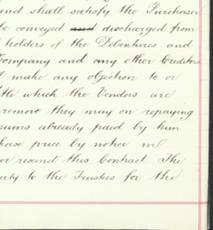 and shall satisfy the Purchaser
be conveyed discharged from
holders of the Debentures and
Company and any other Creditors
make any objection to or
title which the Vendors are
remove they may on repaying
sums already paid by him
chase price by notice
or rescind this Contract The
party to the Trustees for the